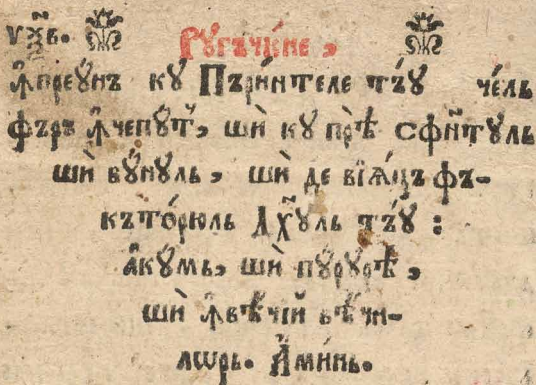 ꙋ҃хв.
Рꙋгъчю́не,
Ꙟпреꙋ́нъ кꙋ Пъри́нтеле тъ́ꙋ че́ль
фъръ ꙟчепꙋ́т, ши кꙋ прѣ Сфн҃тꙋль
ши бꙋ́нꙋль, ши де вїѧ́цъ фъ-
къто́рюль Дх҃ꙋль тъ́ꙋ:
а̓кꙋмь, ши пꙋ́рꙋрѣ,
ши ꙟвѣ́чїй вѣ́чи-
лѡрь. А̓ми́нь.